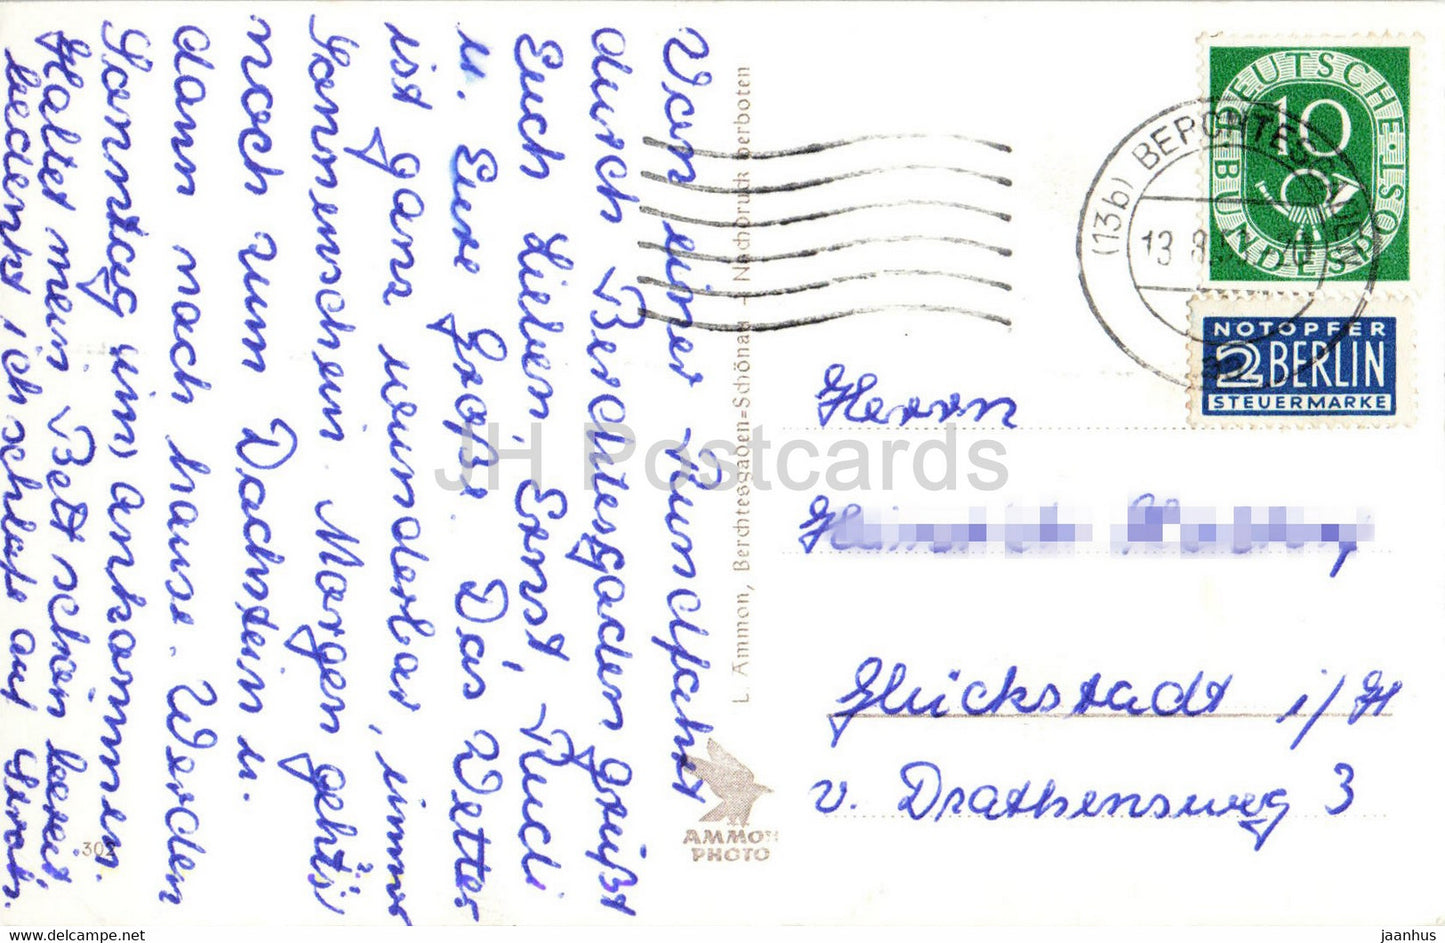 Von einer Rundfahrt
durch Berchtesgaden grüßt
Euch Lieben, Ernst, Rudi
u. Eure Große. Das Wetter
ist ganz wunderbar, immer
Sonnenschein. Morgen geht's
noch zum Dachstein u.
dann nach hause. Werden
Sonntag um ankommen.
Haltet mein Bett schön bereit
bedenkt ich schlafe auf Stroh.
302
L. Ammon, Berchtesgaden=Schönau - Nachdruck verboten
AMMON
PHOTO
JH Postcards
DEUTSCHE BUNDESPOST
10
(13b) BERCHTESGADEN
13.8.
NOTOPFER
2 BERLIN
STEUERMARKE
Herrn
Glückstadt i/H
v. Drathensweg 3
www.delcampe.net
jaanhus